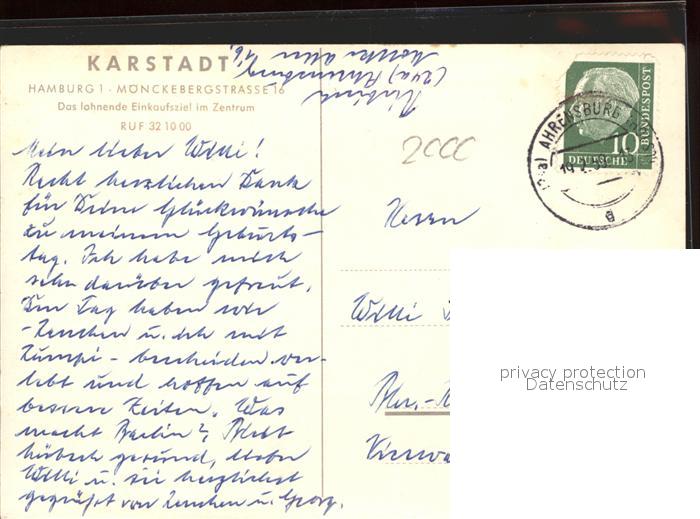 KARSTADT
HAMBURG 1 · MÖNCKEBERGSTRASSE 16
Das lohnende Einkaufsziel im Zentrum
RUF 32 10 00
(24a) Ahrensburg
2000
10
DEUTSCHE
BUNDESPOST
(24a) AHRENSBURG
Mein lieber Willi!
Recht herzlichen Dank
für Deine Glückwünsche
zu meinem Geburts-
tag. Ich habe mich
sehr darüber gefreut.
Den Tag haben wir
-Lenchen u. ich mit
Lumpi - bescheiden ver-
lebt und hoffen auf
bessere Zeiten. Was
macht Berlin? Bleib
hübsch gesund, lieber
Willi u. sei herzlichst
gegrüßt von Lenchen u. Georg.
Herrn
Willi
privacy protection
Datenschutz